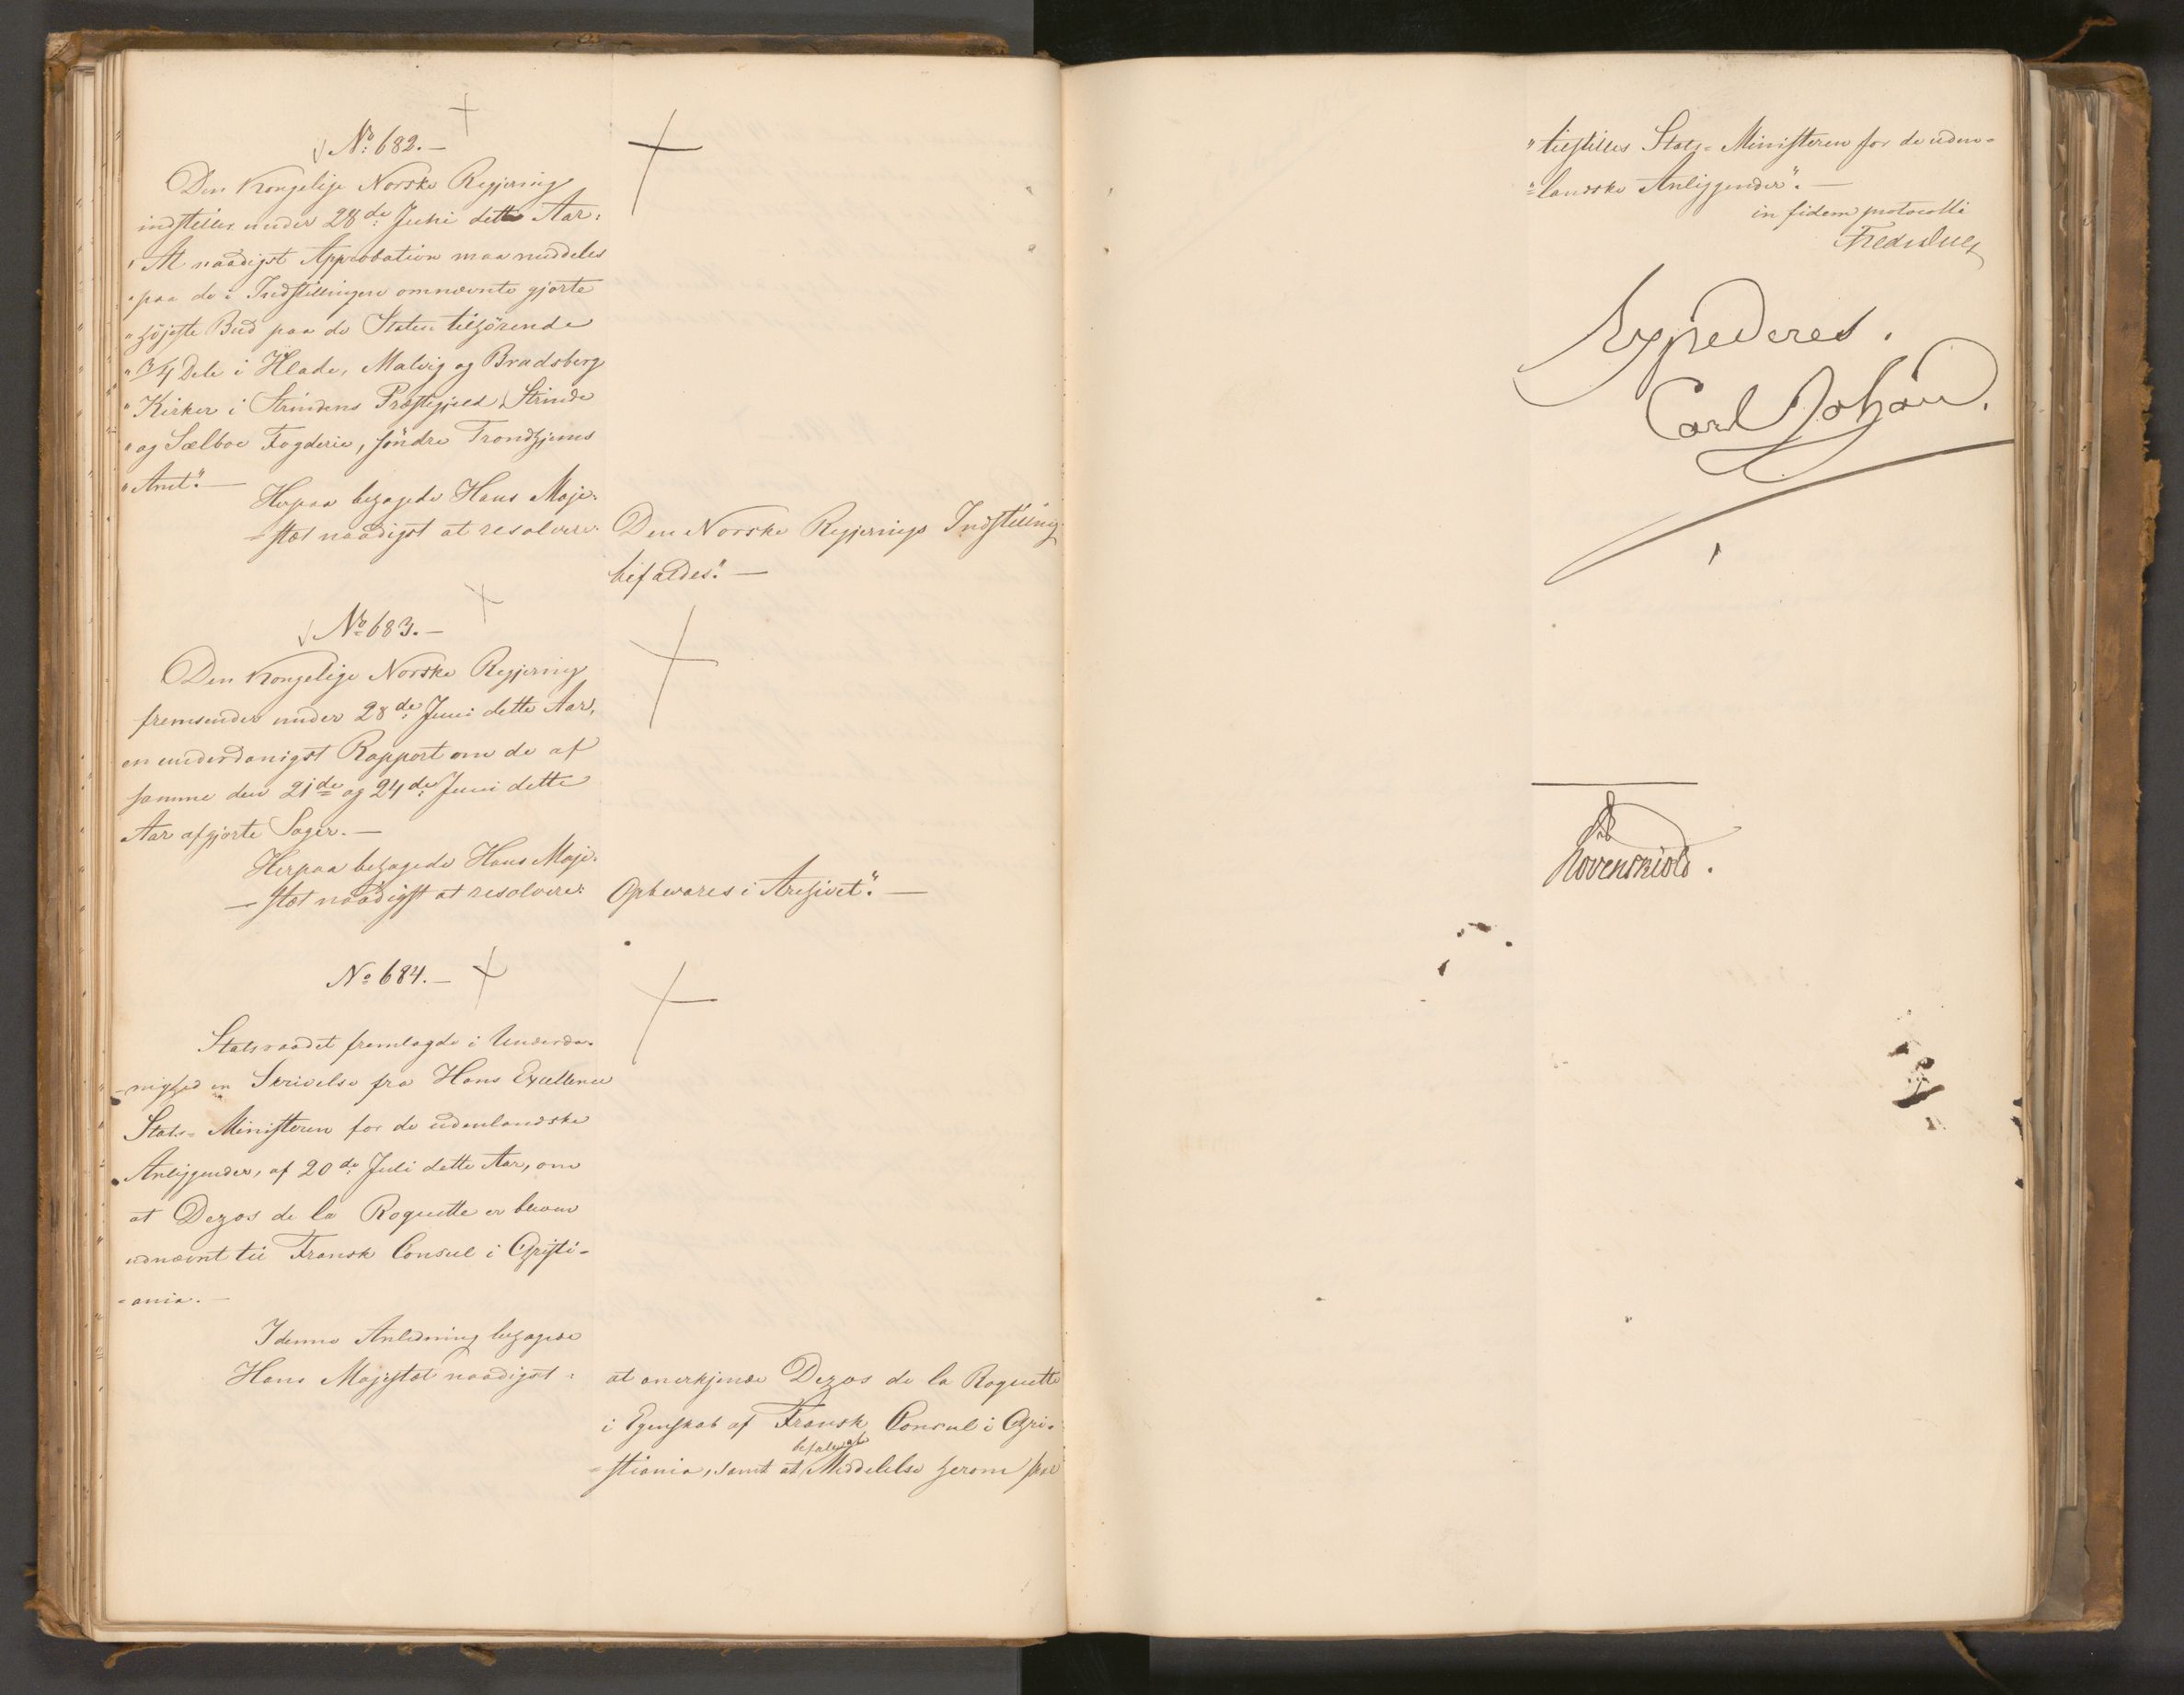 No 682.-
Den Kongelige Norske Regjering
indstiller under 28de Juni dette Aar:
"At naadigst Approbation maa meddeles
"paa de i Indstillingen omnævnte gjorte
"højeste Bud paa de Staten tilhörende
"3/4 Dele i Hlade, Malvig og Bradsberg
"Kirker i Strindens Præstegjeld, Strinde
"og Sælboe Fogderie, söndre Trondhjems
"Amt".-
Herpaa behagede Hans Maje-
-stæt naadigst at resolvere:
Den Norske Regjerings Indstilling
bifaldes".-
No 683.-
Den Kongelige Norske Regjering
fremsender under 28de Juni dette Aar,
en underdanigst Rapport om de af
samme den 21de og 24de Juni dette
Aar afgjorte Sager.-
Herpaa behagede Hans Maje-
-stæt naadigst at resolvere:
Opbevares i Archivet".-
No 684.-
Statsraadet fremlagde i Underda-
-nighed en Skrivelse fra Hans Excellence
Stats-Ministeren for de udenlandske
Anliggender, af 20de Juli dette Aar, om
at Dezos de la Roquette er bleven
udnævnt til Fransk Consul i Christi-
-ania.-
I denne Anledning behagede
Hans Majestæt naadigst:
at anerkjende Dezos de la Roquette
i Egenskab af Fransk Consul i Chri-
befalede
-stiania, samt at Meddelelse herom skal
"tilstilles Stats-Ministeren for de uden-
"-landske Anliggender".-
in fidem protocolli
Fredr Due
Expederes.
Carl Johan.
Løvenskiold.